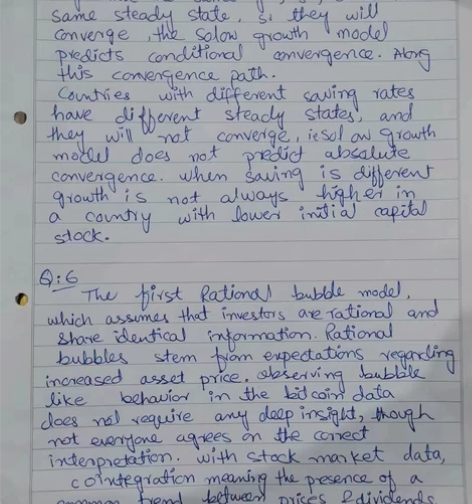 same steady state, so they will
converge, the solow growth model
predicts conditional convergence. Along
this convergence path.
Countries with different saving rates
have different steady states, and
they will not converge, ie sol ow growth
model does not predict absolute
convergence. when saving is different
growth is not always higher in
a country with lower initial capital
stock.
Q:6
The first Rational bubble model,
which assumes that investors are rational and
share identical information. Rational
bubbles stem from expectations regarding
increased asset price, observing bubble
like behavior in the bitcoin data
does not require any deep insight, though
not everyone agrees on the correct
interpretation. with stock market data,
cointegration meaning the presence of a
common trend between prices & dividends